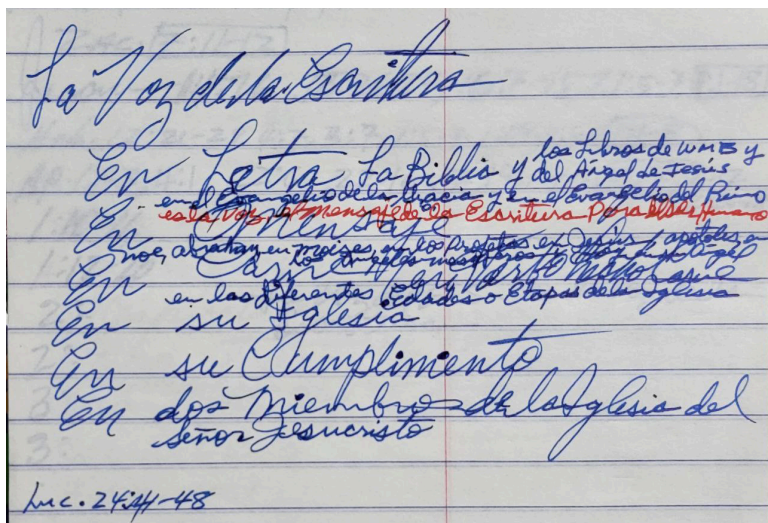 La Voz de la Escritura
los Libros de WMB y
En Letra La Biblia y del Ángel de Jesús
en el Evangelio de la Gracia y en el Evangelio del Reino
es la Voz o Mensaje de la Escritura Para el Ser Humano
En Mensaje
noe, abraham, en moises, en los Profetas en Jesús, apóstoles, en
los Angeles mensajeros
En Carne
En el Verbo hecho Carne
en las diferentes Edades o Etapas de la Iglesia
En su Iglesia
En su Cumplimiento
En dos Miembros de la Iglesia del
Señor Jesucristo
Luc. 24:44-48